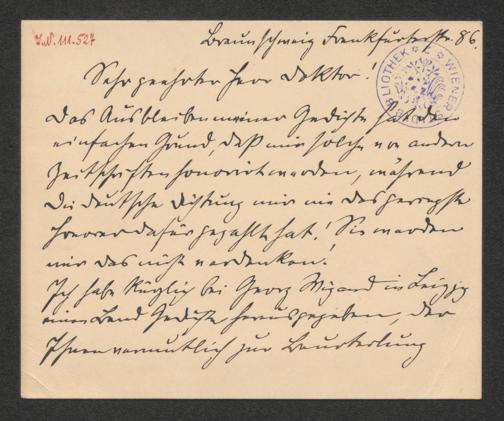 J.N. 111.527
Braunschweig Frankfurterstr. 86.
WIENER STADTBIBLIOTHEK
Sehr geehrter Herr Doktor!
Das Ausbleiben meiner Gedichte hat den
einfachen Grund, daß mir solche von andern
Zeitschriften honorirt werden, während
die deutsche Dichtung mir nie das geringste
Honorar dafür gezahlt hat! Sie werden
mir das nicht verdenken.
Ich habe kürzlich bei Georg Wigand in Leipzig
einen Band Gedichte herausgegeben, der
Ihnen vermutlich zur Beurteilung